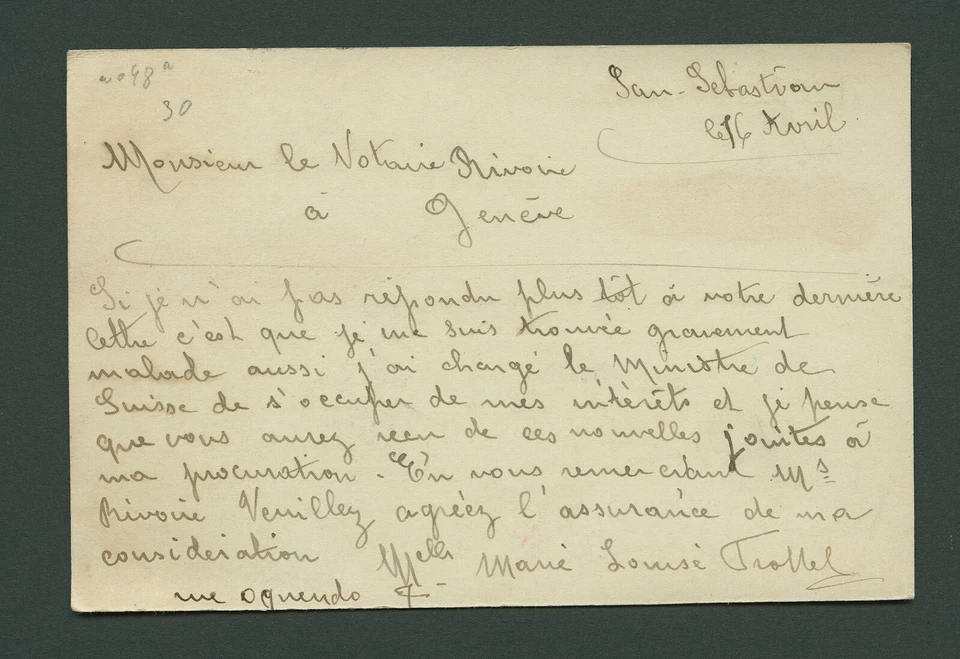 no 48 a
30
San-Sebastian
le 16 Avril
Monsieur le Notaire Rivoire
à Genève
Si je n'ai pas répondu plus tôt á votre derniére
lettre c'est que je me suis trouvée gravement
malade aussi j'ai chargé le Ministre de
Suisse de s'occuper de mes intérêts et je pense
que vous aurez recu de ces nouvelles jointes á
ma procuration. En vous remerciant Ms
Rivoire Veuillez agréez l'assurance de ma
consideration Melle Marie Louise Trottet
rue oquendo 7